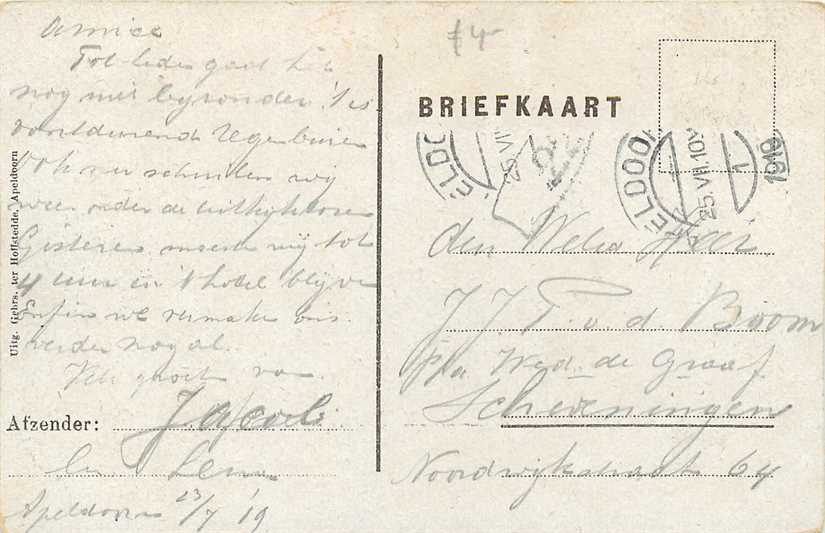 Amice
Tot heden gaat het
nog niet byzonder, 't is
voortdurend regenbuien
ook nu schuilen wij
weer onder de
Gisteren moest wij tot
4 uur in 't hotel blijven
Enfin we vermaken ons
verder nog al.
Vele groet van
Afzender: Jacob
en Lena
Apeldoorn 23/7 '19
Uitg. Gebrs. ter Hoffstedde, Apeldoorn
f4-
BRIEFKAART
ELDOO
25 VII
ELDOOR
25 VII.10V
1
1919
den Weled Heer
J J T v. d. Boom
p/a Wed. de Graaf
Scheveningen
Noordwijkstraat 64